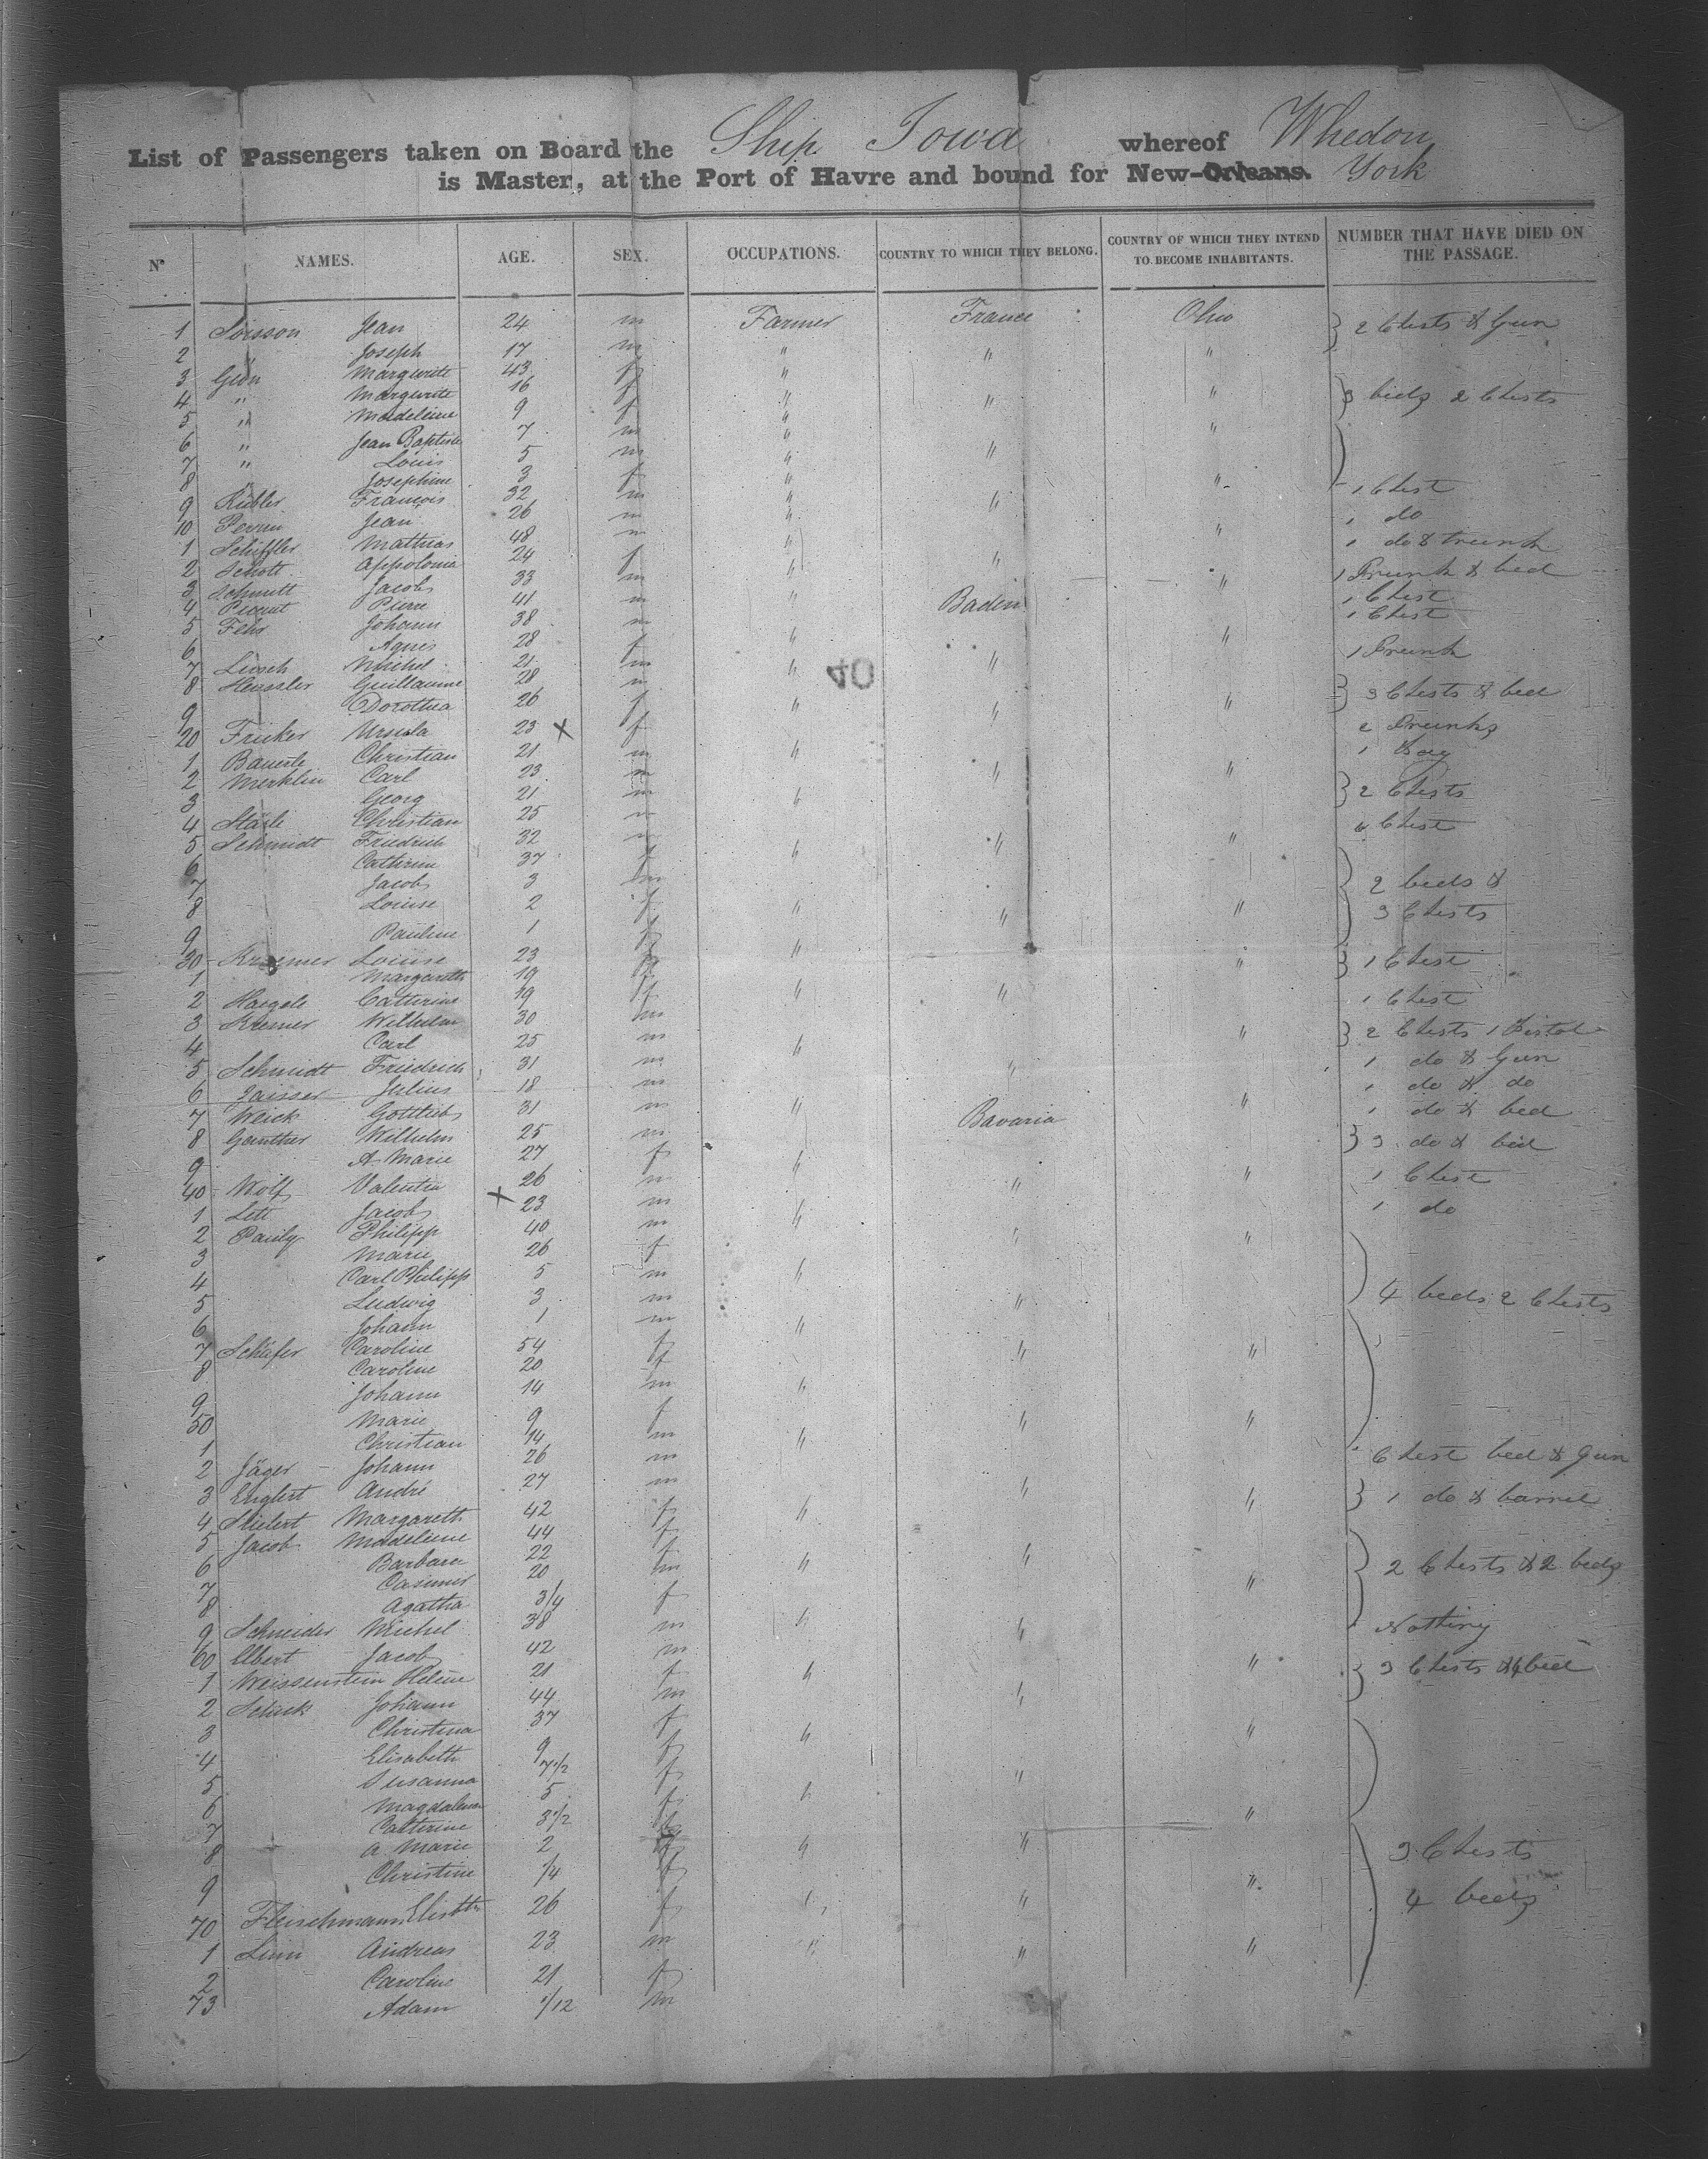 List of Passengers taken on Board the Ship Iowa whereof Whedon
is Master, at the Port of Havre and bound for New-Orleans. York
N° NAMES. AGE. SEX. OCCUPATIONS. COUNTRY TO WHICH THEY BELONG. COUNTRY OF WHICH THEY INTEND TO BECOME INHABITANTS. NUMBER THAT HAVE DIED ON THE PASSAGE.
1 Soisson Jean 24 m Farmer France Ohio 2 Chests & Gun
2 " Joseph 17 m " " "
3 Marguerite 43 f "
4 " Marguerite 16 f " " " 3 beds 2 Chests
5 " Madeleine 9 f "
6 " Jean Baptiste 7 m " "
7 " Louis 5 m " "
8 " Josephine 3 f "
9 François 32 m " " " 1 Chest
10 Jean 26 m " 1 do
1 Schiffler Mathias 48 m " " 1 do & trunk
2 Schott Appolonia 24 f " " 1 Trunk & bed
3 Schmitt Jacob 33 m " 1 Chest
4 Pierre 41 m " Baden 1 Chest
5 Fehr Johann 38 m " "
6 Agnes 28 f 1 Trunk
7 Michel 21 m " "
8 Heussler Guillaume 28 m 3 Chests & bed
9 Dorothea 26 f " " "
20 Fricker Ursula 23 X f 2 Trunks
1 Bauerle Christian 21 m " 1 Bag
2 Merklin Carl 23 m " " 2 Chests
3 Georg 21 m "
4 Stäile Christian 25 m Chest
5 Schmidt Friedrich 32 m " " "
6 Catherine 37 f
7 Jacob 3 m 2 beds &
8 Louise 2 f " " " 3 Chests
9 Pauline 1 f
30 Kraemer Louise 23 f " " 1 Chest
1 Margareth 19 f
2 Haegele Catherine 19 f " " 1 Chest
3 Kremer Wilhelm 30 m " 2 Chests 1 Pistol
4 Carl 25 m "
5 Schmidt Friedrich 31 m " 1 do & Gun
6 Julius 18 m 1 do & do
7 Weick Gottlieb 31 m " Bavaria " 1 do & bed
8 Gunther Wilhelm 25 m 3 do & bed
9 A Marie 27 f "
40 Wolf Valentin 26 m " " 1 Chest
1 Lett Jacob X 23 m " 1 do
2 Pauly Philipp 40 m " "
3 Marie 26 f
4 Carl Philipp 5 m "
5 Ludwig 3 m " 4 beds 2 Chests
6 Johann 1 m "
7 Schäfer Caroline 54 f " "
8 Caroline 20 f
9 Johann 14 m "
50 Marie 9 f " "
1 Christian 14 m "
2 Jäger Johann 26 m Chest bed & Gun
3 Englert André 27 m " " 1 do & barrel
4 Margareth 42 f "
5 Jacob Madeleine 44 f
6 Barbara 22 f " " 2 Chests & 2 beds
7 Casimer 20 m "
8 Agatha 3/4 f
9 Schneider Michel 38 m " " Nothing
60 Elbert Jacob 42 m "
1 Weissenstein Helene 21 f " 3 Chests & bed
2 Schick Johann 44 m "
3 Christina 37 f " "
4 Elisabeth 9 f
5 Susanna 7 1/2 f "
6 Magdalena 5 f "
7 Catherine 3 1/2 f "
8 A Marie 2 f " " 3 Chests
9 Christine 1/4 f "
70 Fleischmann Elisbth 26 f " " 4 beds
1 Linn Andreas 23 m " " "
2 Caroline 21 f
73 Adam 1/12 m
40